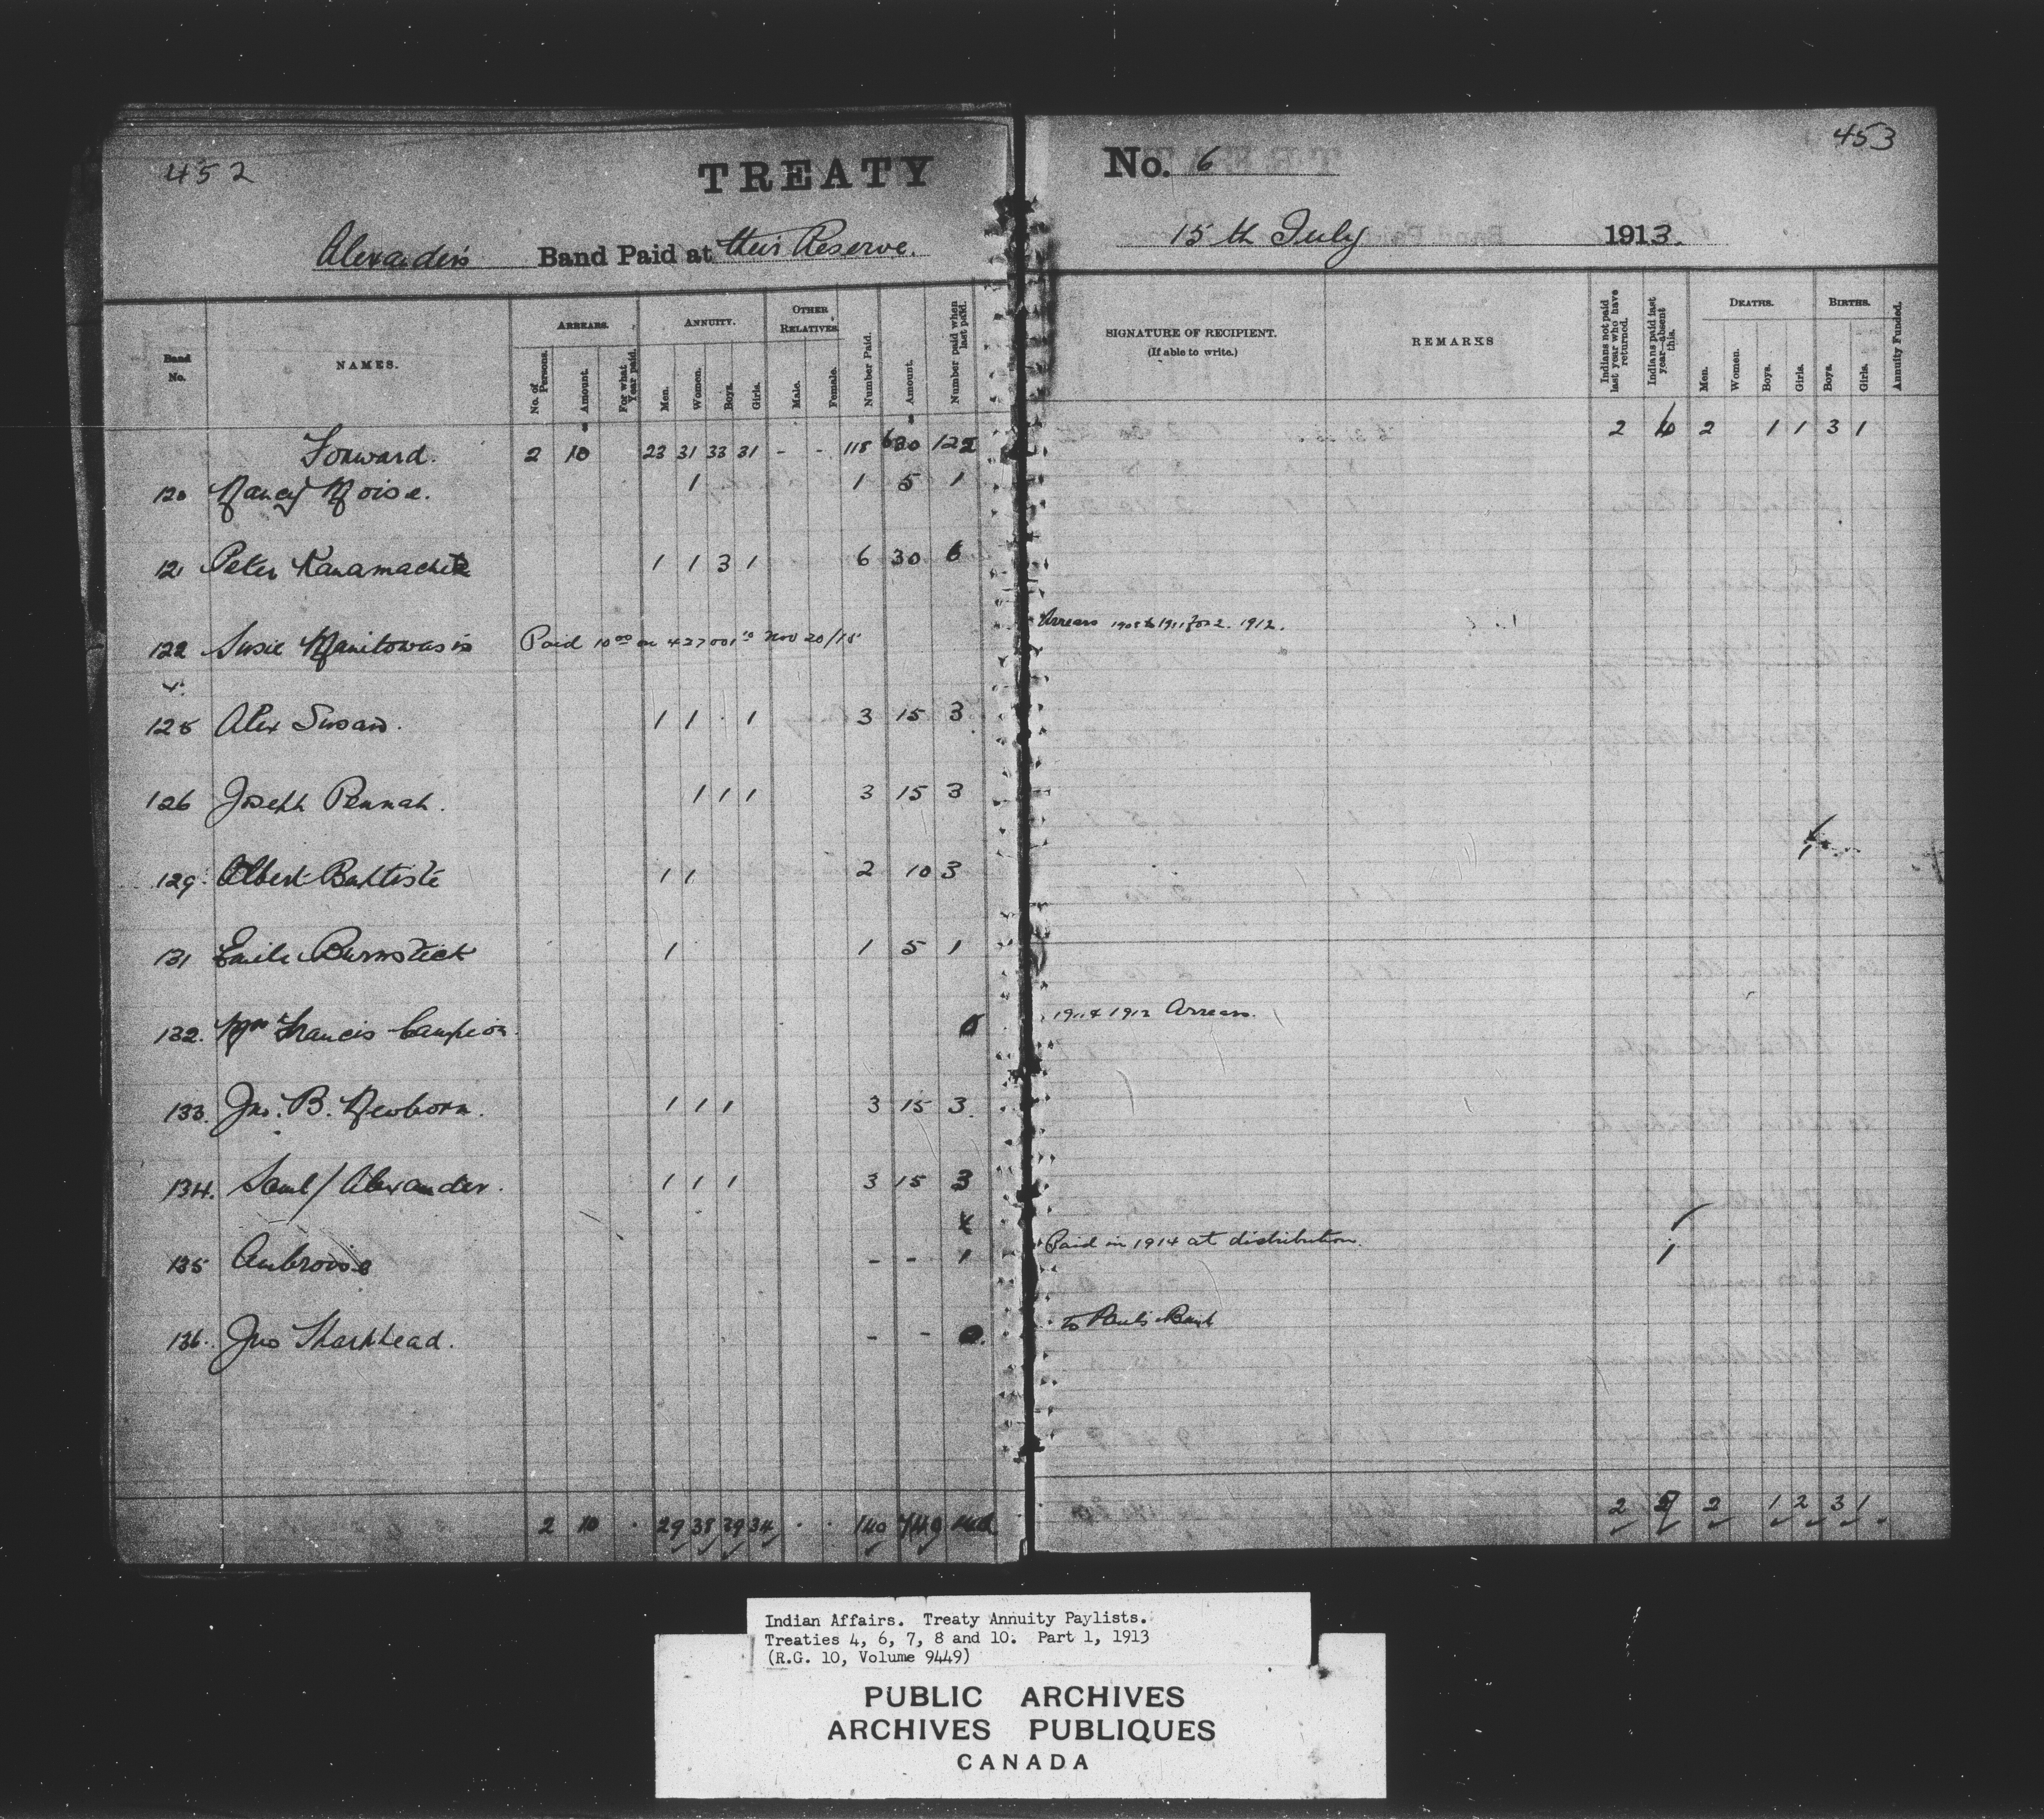 452
TREATY
No. 6
453
Alexander's Band Paid at their Reserve.
15th July 1913.
Band No.
NAMES.
ARREARS.
No. of Persons.
Amount.
For what Year paid.
ANNUITY.
Men.
Women.
Boys.
Girls.
OTHER RELATIVES.
Male.
Female.
Number Paid.
Amount.
Number paid when last paid.
SIGNATURE OF RECIPIENT.
(If able to write.)
REMARKS
Indians not paid last year who have returned.
Indians paid last year—absent this.
DEATHS.
Men.
Women.
Boys.
Girls.
BIRTHS.
Boys.
Girls.
Annuity Funded.
Forward. 2 10 23 31 33 31 - - 118 630 122 2 6 2 1 1 3 1
120 Nancy Moise. 1 1 5 1
121 Peter Kanamachet 1 1 3 1 6 30 6
122 Susie Manitowasis Paid 10 00 on 427001 Nov 20/15 Arrears 1912.
125 Alex Swan. 1 1 1 3 15 3
126 Joseph Pennah. 1 1 1 3 15 3
129 Albert Baptiste 1 1 2 10 3 1
131 Emile Burnstick 1 1 5 1
132. Mrs Francis Campion. 0 1911 & 1912 Arrears.
133. Jno. B. Newborn. 1 1 1 3 15 3.
134. Saml / Alexander. 1 1 1 3 15 3
135 Ambroise - - 1 Paid in 1914 at distribution. 1
136. Jno Sharkhead. - - 0. To Paul's Band
2 10 29 38 39 34 140 2 2 1 2 3 1
Indian Affairs. Treaty Annuity Paylists.
Treaties 4, 6, 7, 8 and 10. Part 1, 1913
(R.G. 10, Volume 9449)
PUBLIC ARCHIVES
ARCHIVES PUBLIQUES
CANADA